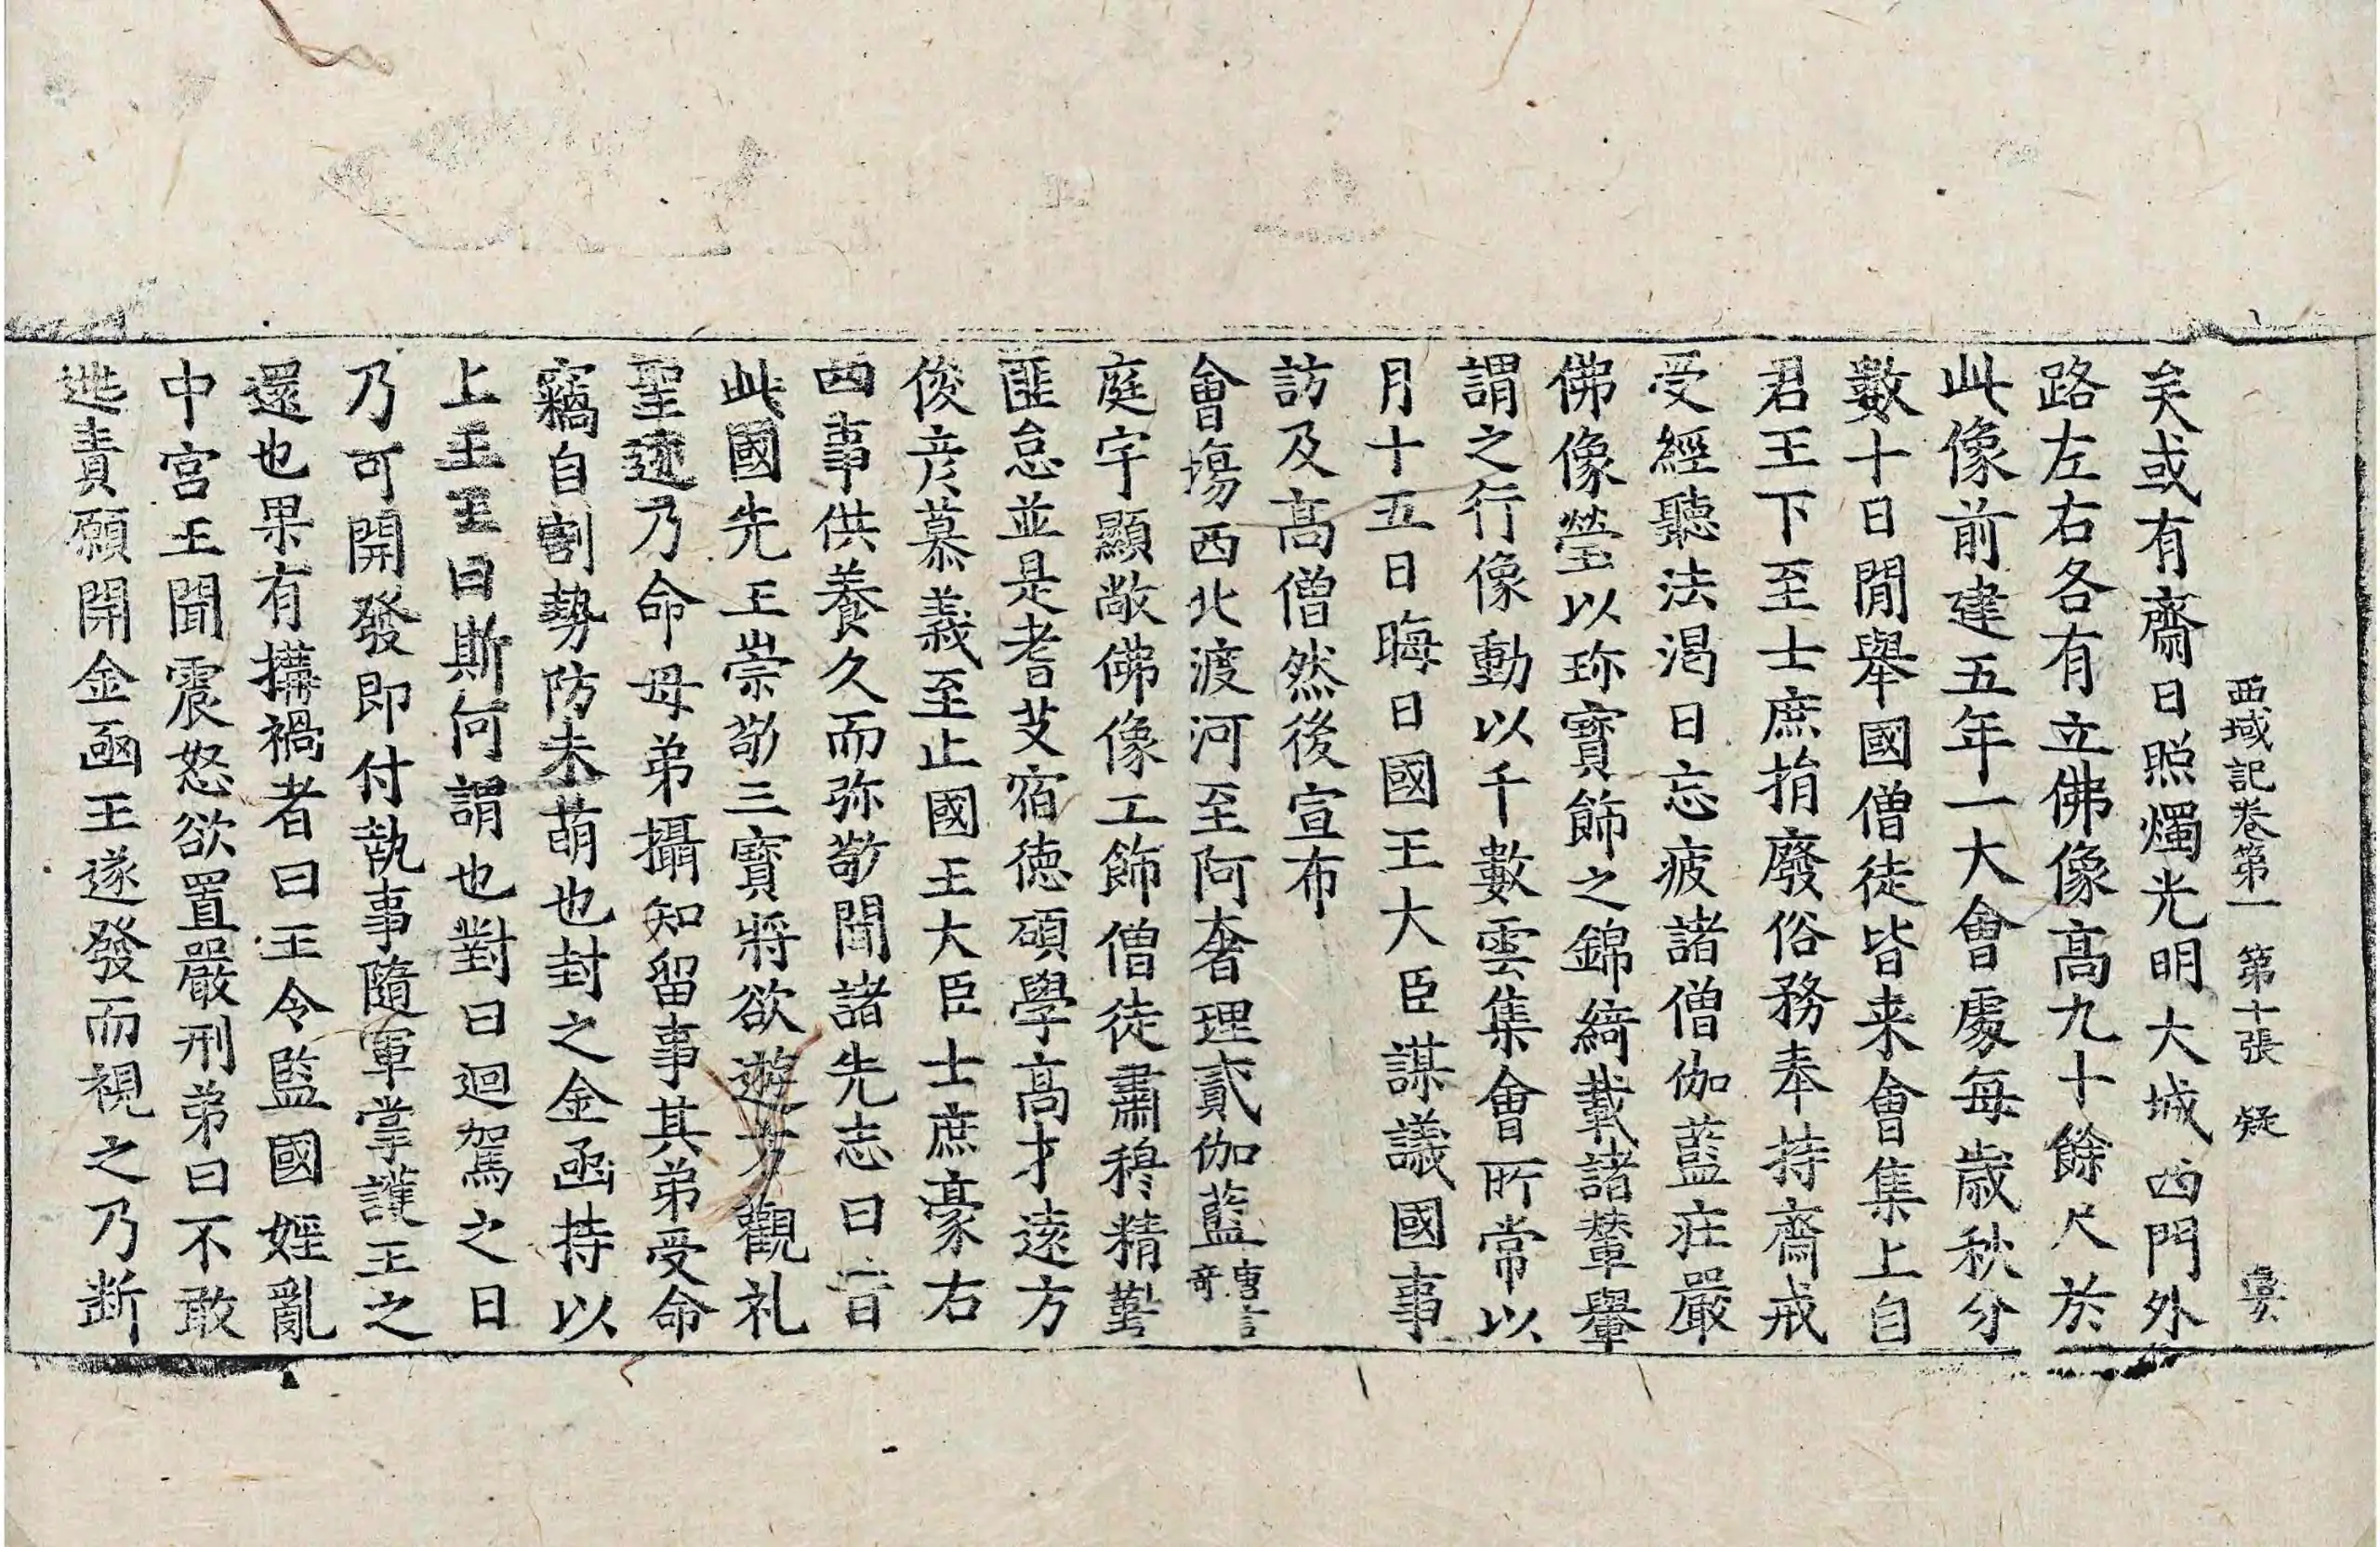 西域記卷第一 第十張 疑
矣或有齋日照燭光明大城西門外
路左右各有立佛像高九十餘尺於
此像前建五年一大會處每歲秋分
數十日閒舉國僧徒皆来會集上自
君王下至士庶捐廢俗務奉持齋戒
受經聽法渴日忘疲諸僧伽藍莊嚴
佛像瑩以珎寶飾之錦綺載諸輦轝
謂之行像動以千數雲集會所常以
月十五日晦日國王大臣謀議國事
訪及高僧然後宣布
會場西北渡河至阿奢理貳伽藍唐言奇
庭宇顯敞佛像工飾僧徒肅穆精勤
匪怠並是耆艾宿德碩學高才遠方
俊彦慕義至止國王大臣士庶豪右
四事供養久而弥敬聞諸先志曰昔
此國先王崇敬三寶將欲遊方觀礼
聖迹乃命母弟攝知留事其弟受命
竊自割勢防未萌也封之金函持以
上王王曰斯何謂也對曰迴駕之日
乃可開發即付執事隨軍掌護王之
還也果有搆禍者曰王令監國婬亂
中宮王聞震怒欲置嚴刑弟曰不敢
逃責願開金函王遂發而視之乃断